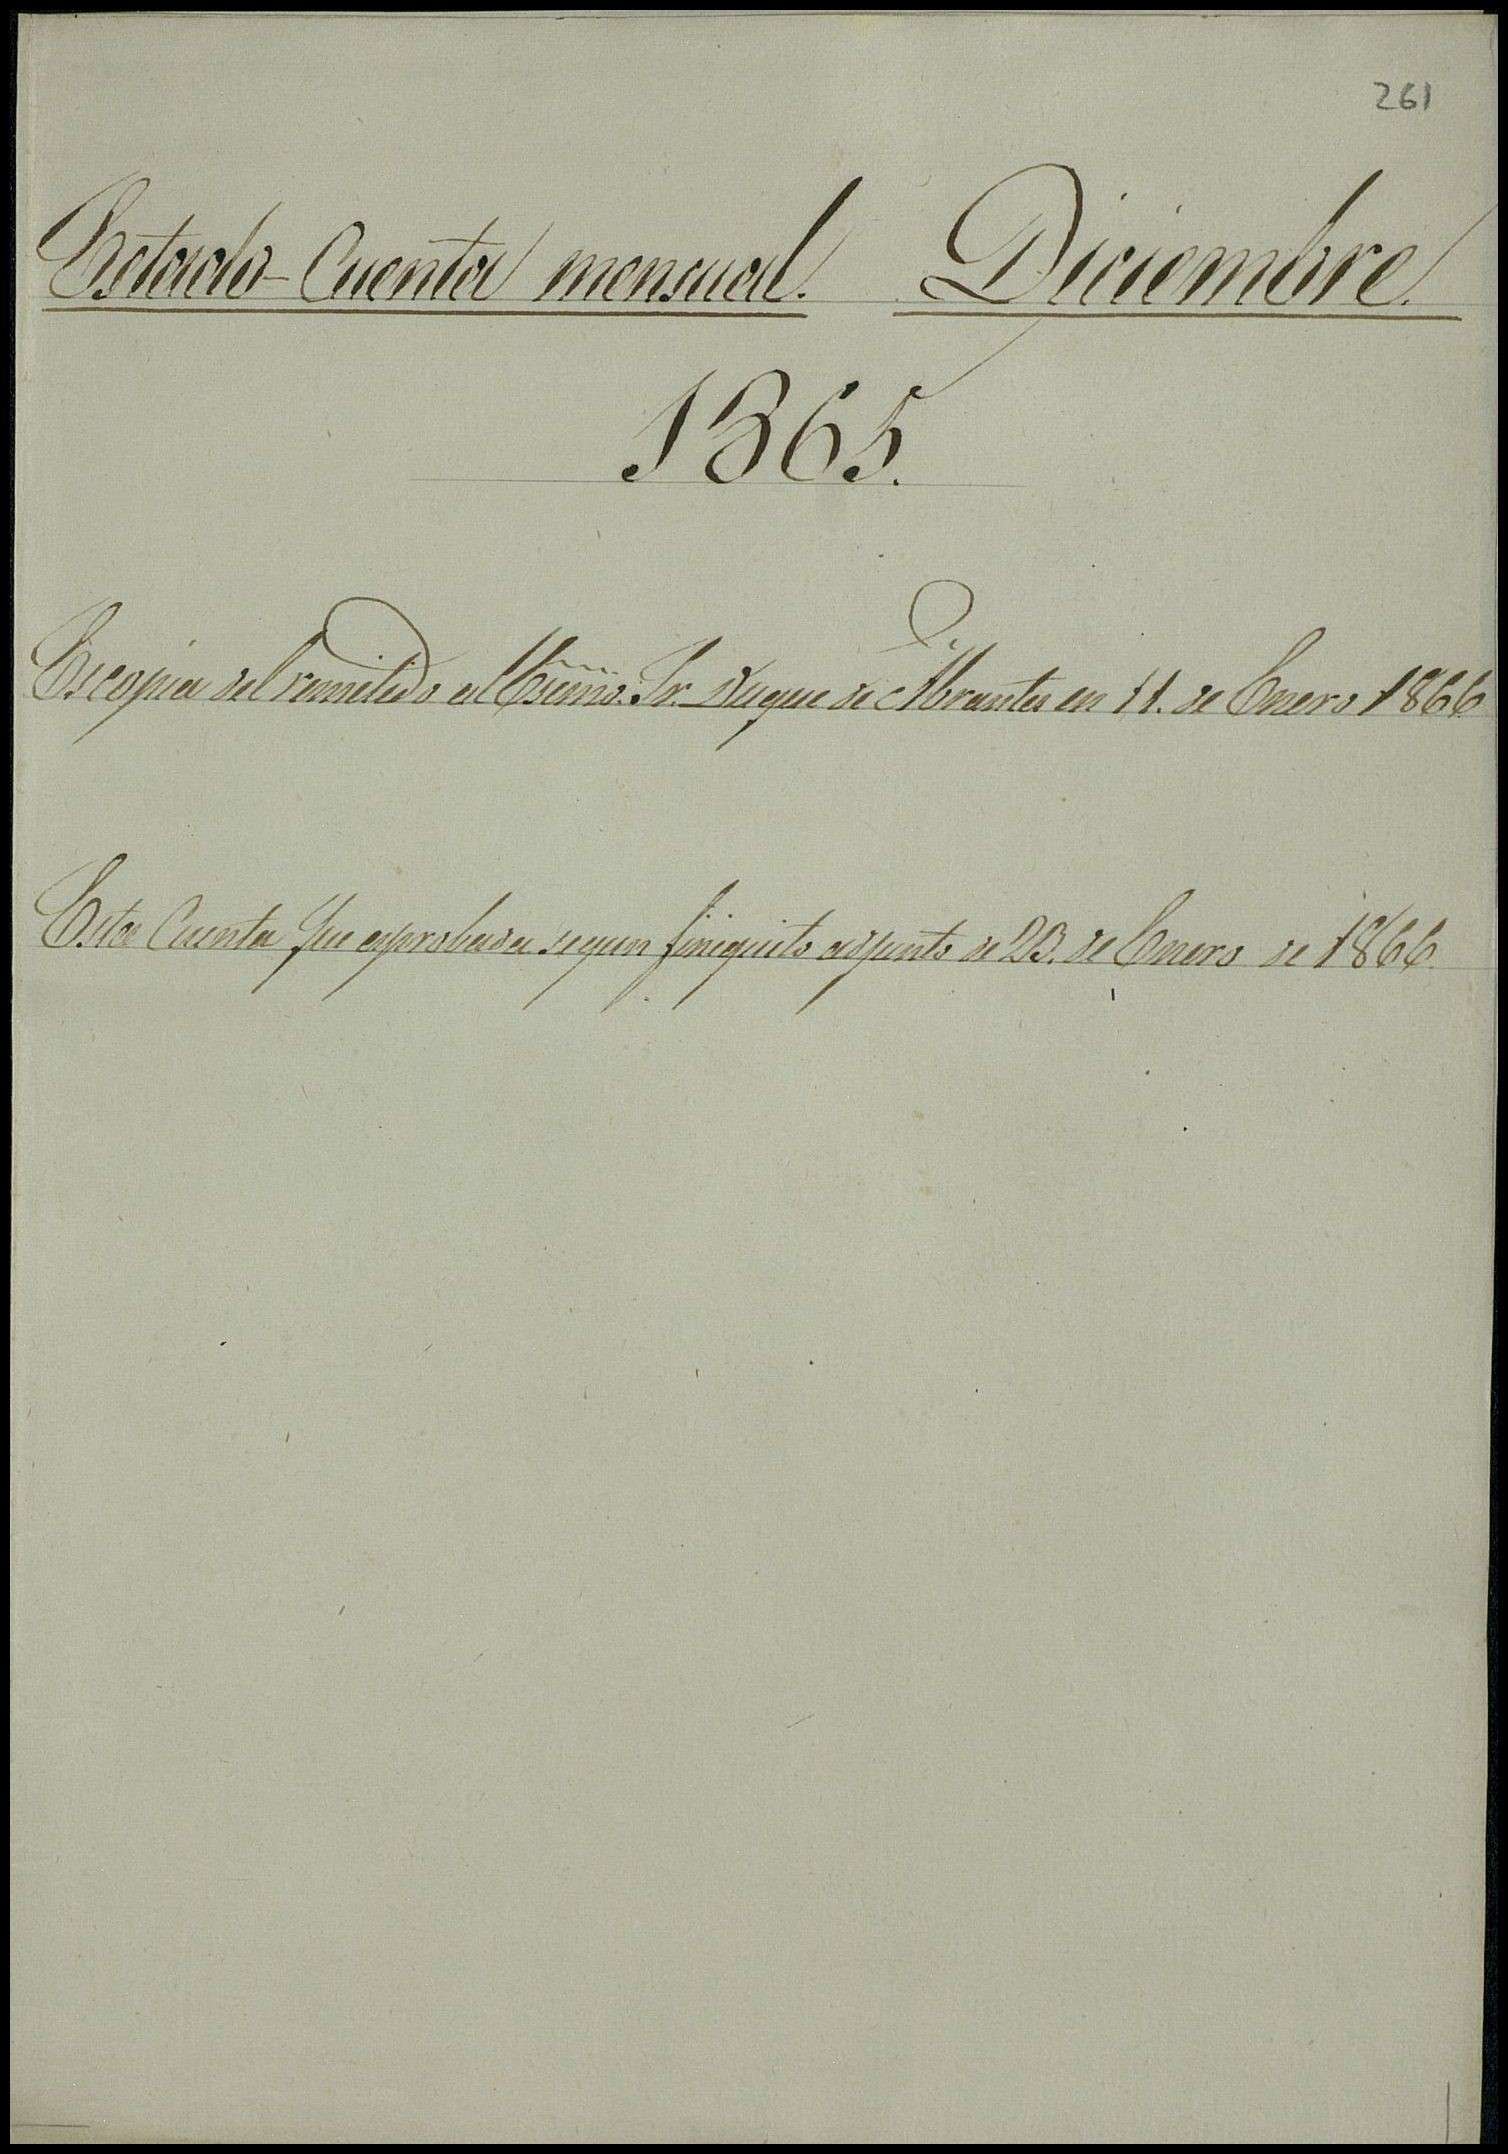 261
Estado-Cuenta mensual. Diciembre.
1865.
Es copia del remitido al Escmo. Sr. Duque de Abrantes en 11. de Enero 1866
Esta Cuenta fue aprobada segun finiquito adjunto de 23. de Enero de 1866.